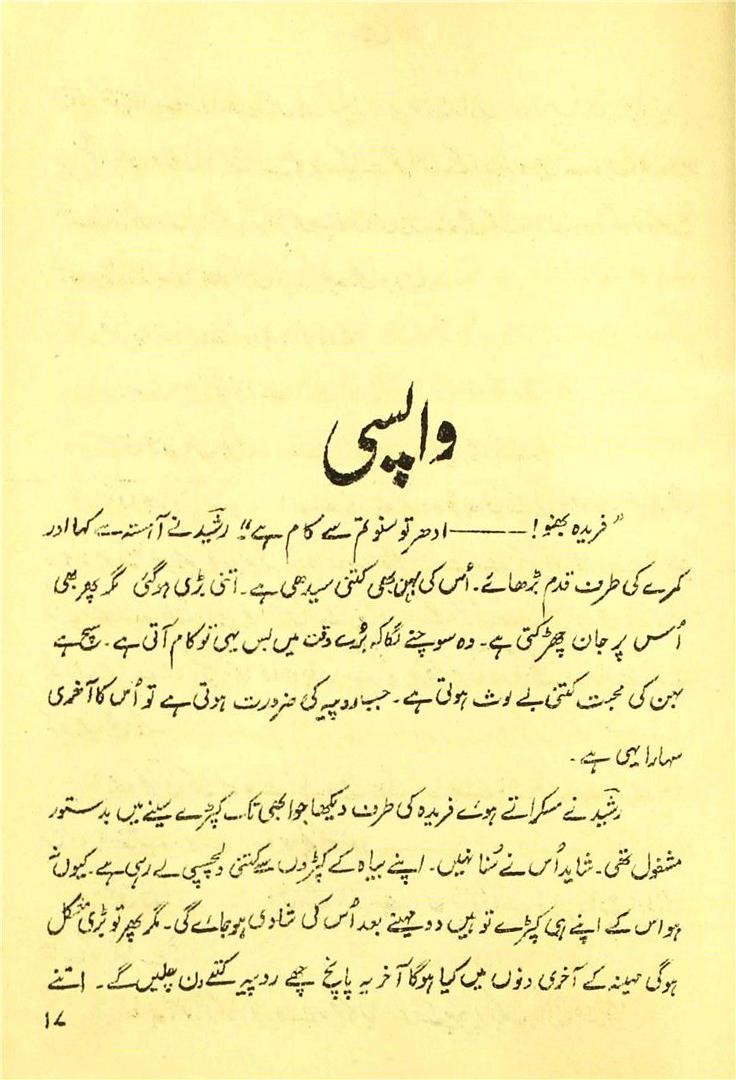 واپسی
"فریدہ بھنو! ——— ادھر تو سنو تم سے کام ہے" رشید نے آہستہ سے کہا اور
کمرے کی طرف قدم بڑھائے۔ اُس کی بہن بھی کتنی سیدھی ہے۔ اتنی بڑی ہوگئی مگر پھر بھی
اُس پر جان چھڑکتی ہے۔ وہ سوچنے لگا کہ بُرے وقت میں بس یہی تو کام آتی ہے۔ سچ ہے
بہن کی محبت کتنی بے لوث ہوتی ہے۔ جب روپیہ کی ضرورت ہوتی ہے تو اُس کا آخری
سہارا یہی ہے۔
رشید نے مسکراتے ہوئے فریدہ کی طرف دیکھا جو ابھی تک کپڑے سینے میں بدستور
مشغول تھی۔ شاید اُس نے سُنا نہیں۔ اپنے بیاہ کے کپڑوں سے کتنی دلچسپی لے رہی ہے۔ کیوں نہ
ہو اس کے اپنے ہی کپڑے تو ہیں دو مہینے بعد اُس کی شادی ہو جائے گی۔ مگر پھر تو بڑی مشکل
ہوگی مہینہ کے آخری دنوں میں کیا ہوگا آخر یہ پانچ چھے روپیہ کتنے دن چلیں گے۔ اتنے
۱۷